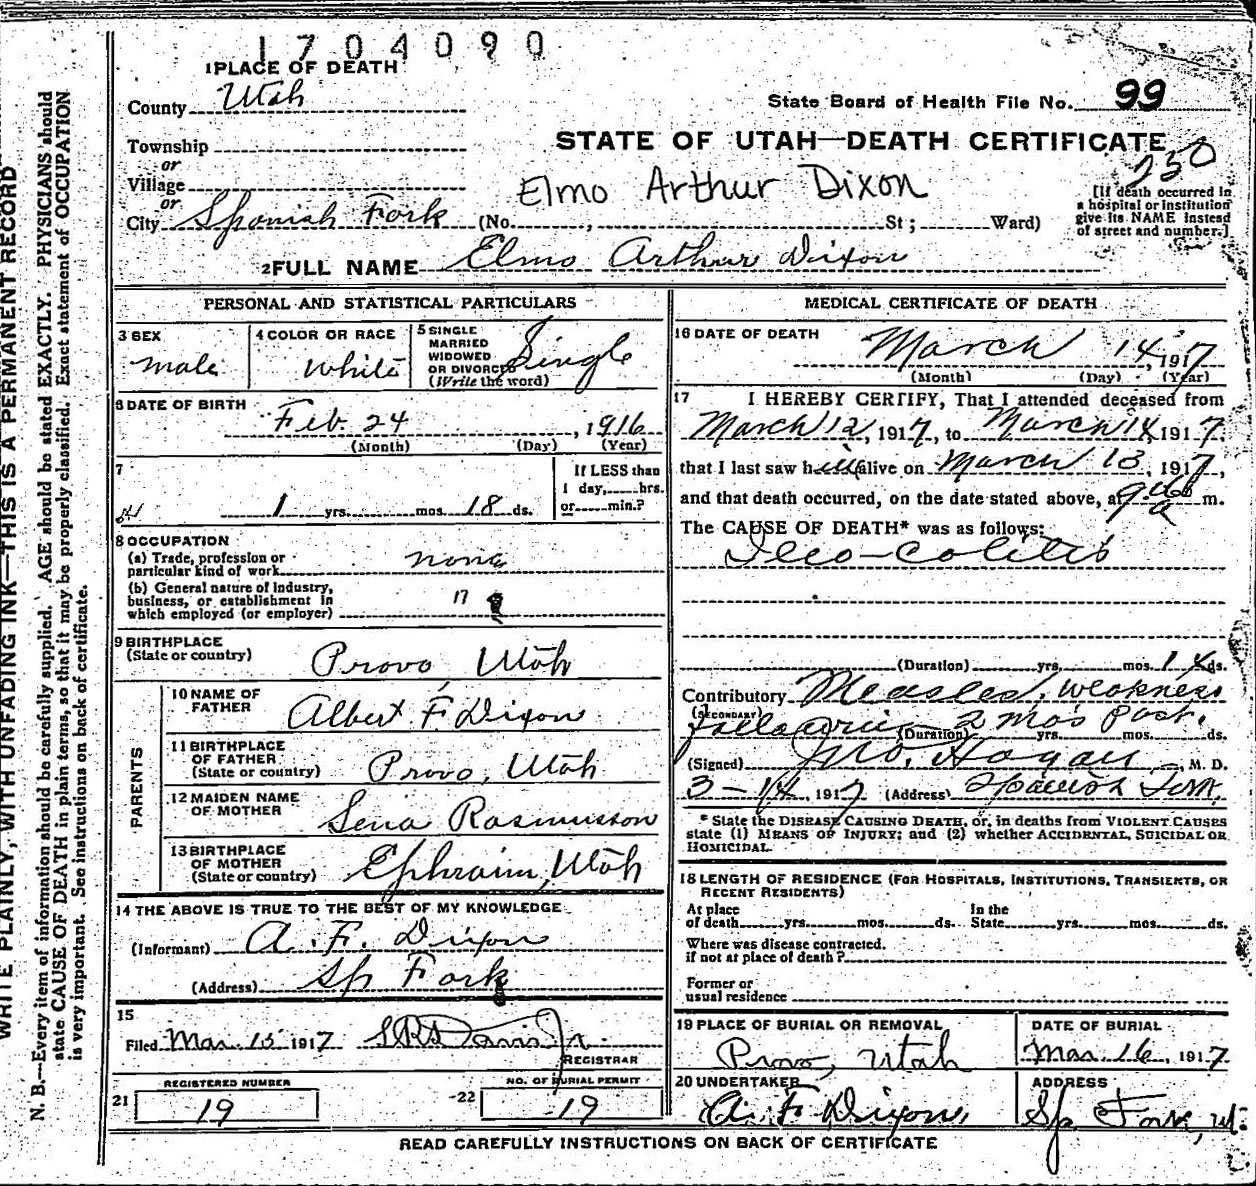 1704090
1 PLACE OF DEATH
County Utah
State Board of Health File No. 99
Township
STATE OF UTAH—DEATH CERTIFICATE
or
250
Village
Elmo Arthur Dixon
or
City Spanish Fork (No. , St; Ward)
[If death occurred in
a hospital or institution
give its NAME instead
of street and number.]
2 FULL NAME Elmo Arthur Dixon
PERSONAL AND STATISTICAL PARTICULARS
3 SEX
male
4 COLOR OR RACE
White
5 SINGLE
MARRIED
WIDOWED
OR DIVORCED
(Write the word)
Single
6 DATE OF BIRTH
Feb. 24, 1916
(Month) (Day) (Year)
7
1 yrs. mos. 18 ds.
If LESS than
1 day, hrs.
or min.?
8 OCCUPATION
(a) Trade, profession or
particular kind of work none
(b) General nature of industry,
business, or establishment in
which employed (or employer)
"
9 BIRTHPLACE
(State or country) Provo, Utah
PARENTS
10 NAME OF
FATHER Albert F. Dixon
11 BIRTHPLACE
OF FATHER
(State or country) Provo, Utah
12 MAIDEN NAME
OF MOTHER Sena Rasmusson
13 BIRTHPLACE
OF MOTHER
(State or country) Ephraim, Utah
14 THE ABOVE IS TRUE TO THE BEST OF MY KNOWLEDGE
(Informant) A. F. Dixon
(Address) Sp Fork
15
Filed Mar. 15 1917 Davis Jr.
REGISTRAR
REGISTERED NUMBER
21 19
NO. OF BURIAL PERMIT
22 19
MEDICAL CERTIFICATE OF DEATH
16 DATE OF DEATH
March 14, 1917
(Month) (Day) (Year)
17 I HEREBY CERTIFY, That I attended deceased from
March 12, 1917, to March 14 1917.
that I last saw him alive on March 13, 1917,
and that death occurred, on the date stated above, at m.
The CAUSE OF DEATH* was as follows:
Ileo-colitis
(Duration) yrs. mos. ds.
Contributory Measles, weakness
(SECONDARY)
following 2 mo's past.
(Duration) yrs. mos. ds.
(Signed) Jno. Hogan, M. D.
3-14, 1917 (Address) Spanish Fork,
* State the DISEASE CAUSING DEATH, or, in deaths from VIOLENT CAUSES
state (1) MEANS OF INJURY; and (2) whether ACCIDENTAL, SUICIDAL OR
HOMICIDAL.
18 LENGTH OF RESIDENCE (FOR HOSPITALS, INSTITUTIONS, TRANSIENTS, OR
RECENT RESIDENTS)
At place
of death yrs. mos. ds.
In the
State yrs. mos. ds.
Where was disease contracted.
if not at place of death?
Former or
usual residence
19 PLACE OF BURIAL OR REMOVAL
Provo, Utah
DATE OF BURIAL
Mar. 16, 1917
20 UNDERTAKER
A. F. Dixon,
ADDRESS
Sp Fork, Ut.
READ CAREFULLY INSTRUCTIONS ON BACK OF CERTIFICATE
WRITE PLAINLY, WITH UNFADING INK—THIS IS A PERMANENT RECORD
N. B.—Every item of information should be carefully supplied. AGE should be stated EXACTLY. PHYSICIANS should
state CAUSE OF DEATH in plain terms, so that it may be properly classified. Exact statement of OCCUPATION
is very important. See instructions on back of certificate.